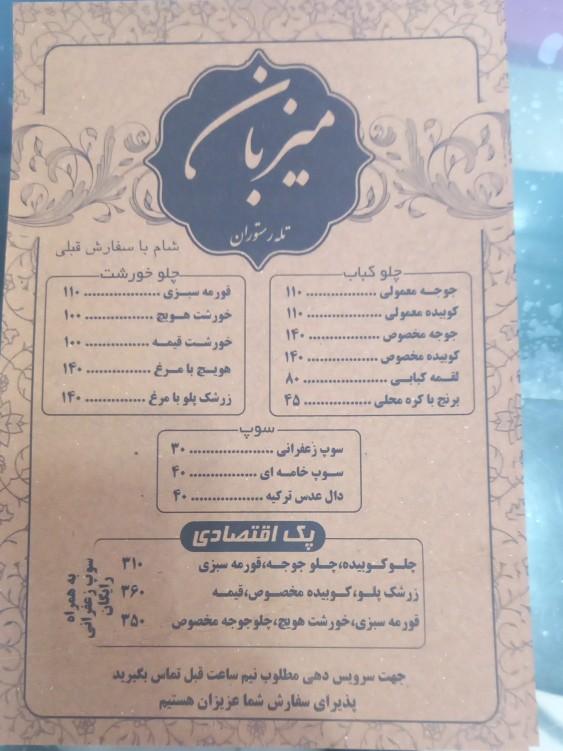 میزبان
تله رستوران
شام با سفارش قبلی
چلو کباب
جوجه معمولی ................ ۱۱۰
کوبیده معمولی ................ ۱۱۰
جوجه مخصوص ................ ۱۴۰
کوبیده مخصوص ................ ۱۴۰
لقمه کبابی .................... ۸۰
برنج با کره محلی ................ ۴۵
چلو خورشت
قورمه سبزی .................. ۱۱۰
خورشت هویج ................ ۱۰۰
خورشت قیمه .................. ۱۰۰
هویج با مرغ ................ ۱۴۰
زرشک پلو با مرغ .............. ۱۴۰
سوپ
سوپ زعفرانی .................... ۳۰
سوپ خامه ای ................ ۴۰
دال عدس ترکیه ................ ۴۰
پک اقتصادی
چلو کوبیده،چلو جوجه،قورمه سبزی ۳۱۰
زرشک پلو،کوبیده مخصوص،قیمه ۳۶۰
قورمه سبزی،خورشت هویج،چلوجوجه مخصوص ۳۵۰
به همراه
سوپ زعفرانی
رایگان
جهت سرویس دهی مطلوب نیم ساعت قبل تماس بگیرید
پذیرای سفارش شما عزیزان هستیم